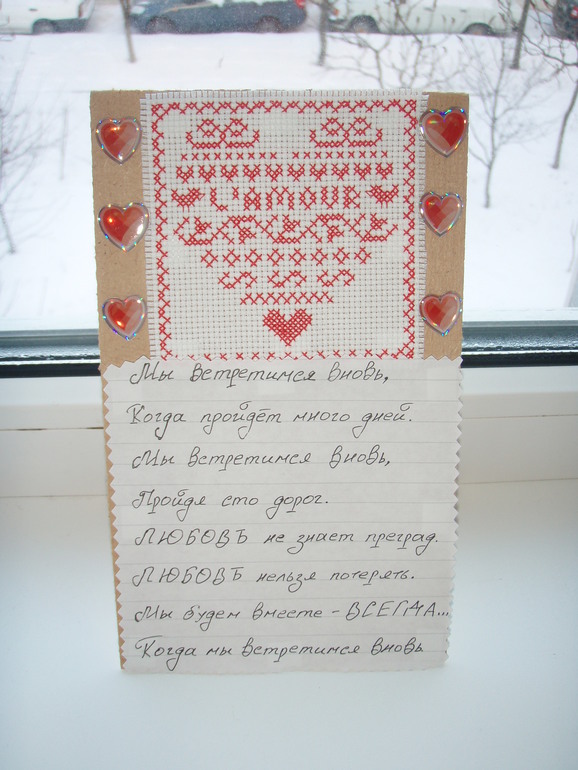 L'AMOUR
Мы встретимся вновь,
Когда пройдёт много дней.
Мы встретимся вновь,
Пройдя сто дорог.
ЛЮБОВЬ не знает преград.
ЛЮБОВЬ нельзя потерять.
Мы будем вместе - ВСЕГДА...
Когда мы встретимся вновь